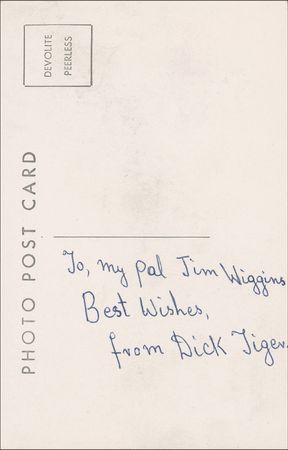 DEVOLITE
PEERLESS
PHOTO POST CARD
To, my pal Jim Wiggins
Best Wishes,
from Dick Tiger.